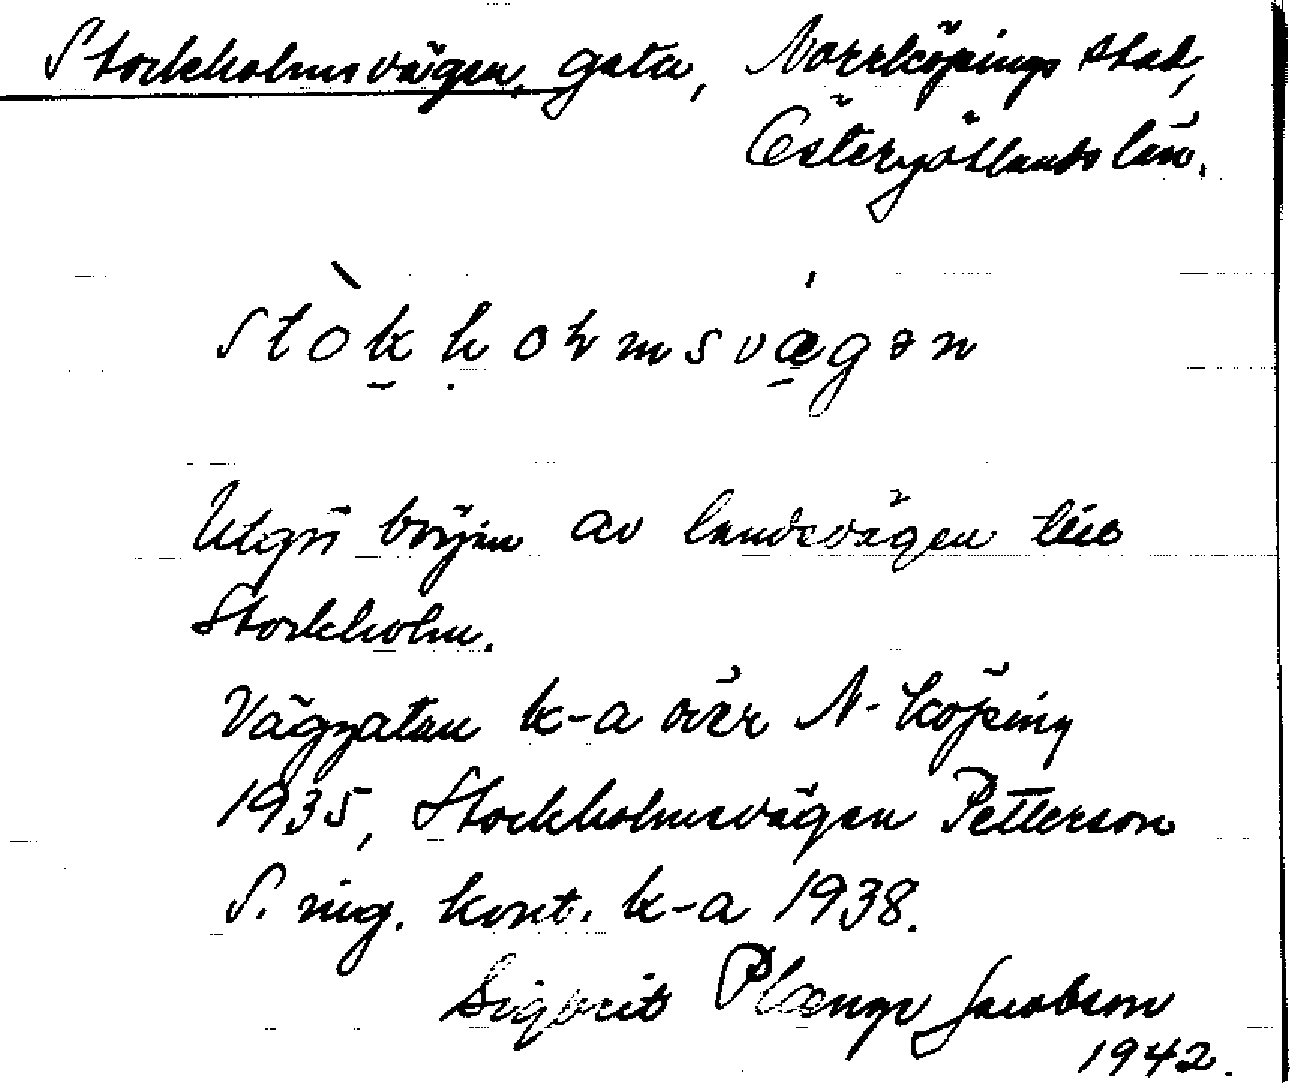 Stockholmsvägen, gata, Norrköpings stad,
Östergötlands län.
stòkholmsvägən
Utgör början av landsvägen till
Stockholm.
Väggatan k-a över N-köping
1935, Stockholmsvägen Petterson
S. ing. kont. k-a 1938.
Sigbrit Plænge Jacobson
1942.